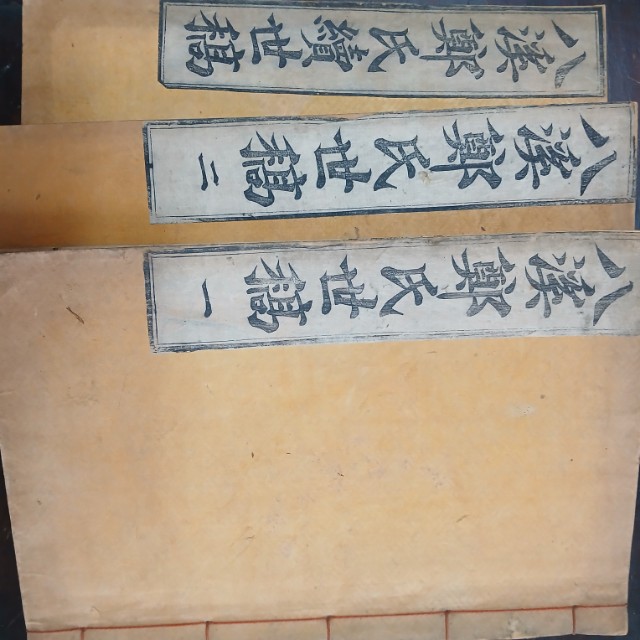 八溪鄭氏世稿 一
八溪鄭氏世稿 二
八溪鄭氏續世稿